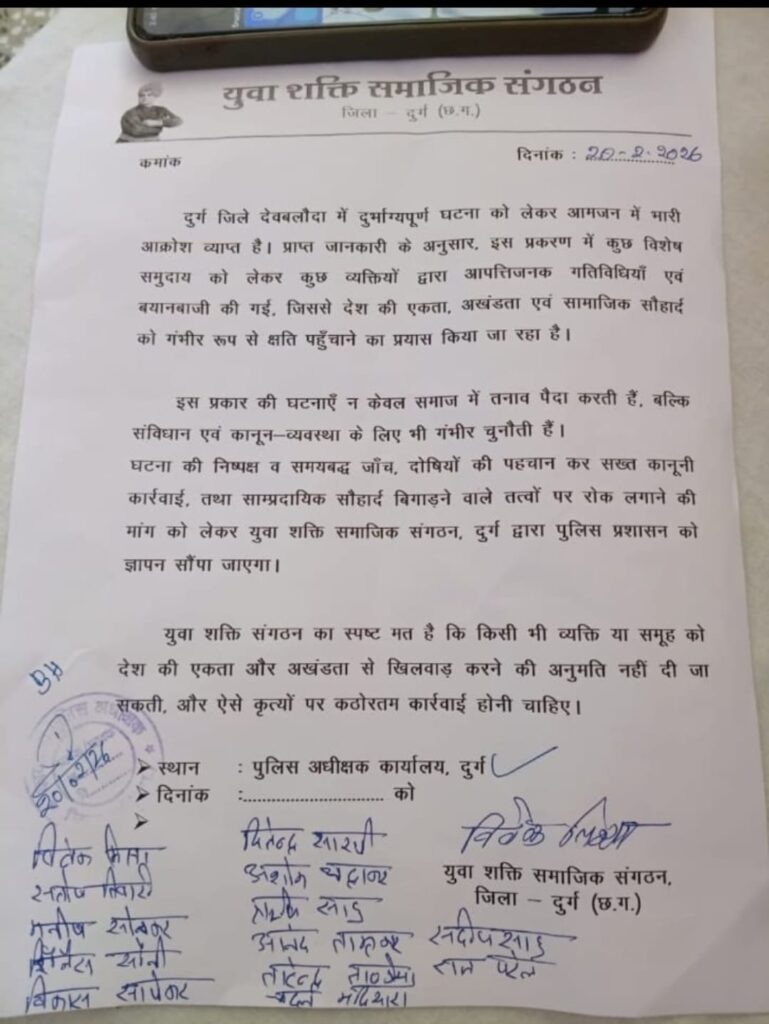 युवा शक्ति समाजिक संगठन
जिला – दुर्ग (छ.ग.)
कमांक
दिनांक : 20-2-2026
दुर्ग जिले देवबलौदा में दुर्भाग्यपूर्ण घटना को लेकर आमजन में भारी
आक्रोश व्याप्त है। प्राप्त जानकारी के अनुसार, इस प्रकरण में कुछ विशेष
समुदाय को लेकर कुछ व्यक्तियों द्वारा आपत्तिजनक गतिविधियाँ एवं
बयानबाजी की गई, जिससे देश की एकता, अखंडता एवं सामाजिक सौहार्द
को गंभीर रूप से क्षति पहुँचाने का प्रयास किया जा रहा है।
इस प्रकार की घटनाएँ न केवल समाज में तनाव पैदा करती हैं, बल्कि
संविधान एवं कानून–व्यवस्था के लिए भी गंभीर चुनौती हैं।
घटना की निष्पक्ष व समयबद्ध जाँच, दोषियों की पहचान कर सख्त कानूनी
कार्रवाई, तथा साम्प्रदायिक सौहार्द बिगाड़ने वाले तत्वों पर रोक लगाने की
मांग को लेकर युवा शक्ति समाजिक संगठन, दुर्ग द्वारा पुलिस प्रशासन को
ज्ञापन सौंपा जाएगा।
युवा शक्ति संगठन का स्पष्ट मत है कि किसी भी व्यक्ति या समूह को
देश की एकता और अखंडता से खिलवाड़ करने की अनुमति नहीं दी जा
सकती, और ऐसे कृत्यों पर कठोरतम कार्रवाई होनी चाहिए।
20/02/26
➤ स्थान : पुलिस अधीक्षक कार्यालय, दुर्ग
➤ दिनांक :............................ को
➤
विवेक मिश्रा
संतोष तिवारी
मनीष सोनकर
सोनी
विकास
अशोक चन्द्राकर
साहू
आनंद ताम्रकर
विवेक मिश्रा
युवा शक्ति समाजिक संगठन,
जिला – दुर्ग (छ.ग.)
संदीप साहू
राम पटेल